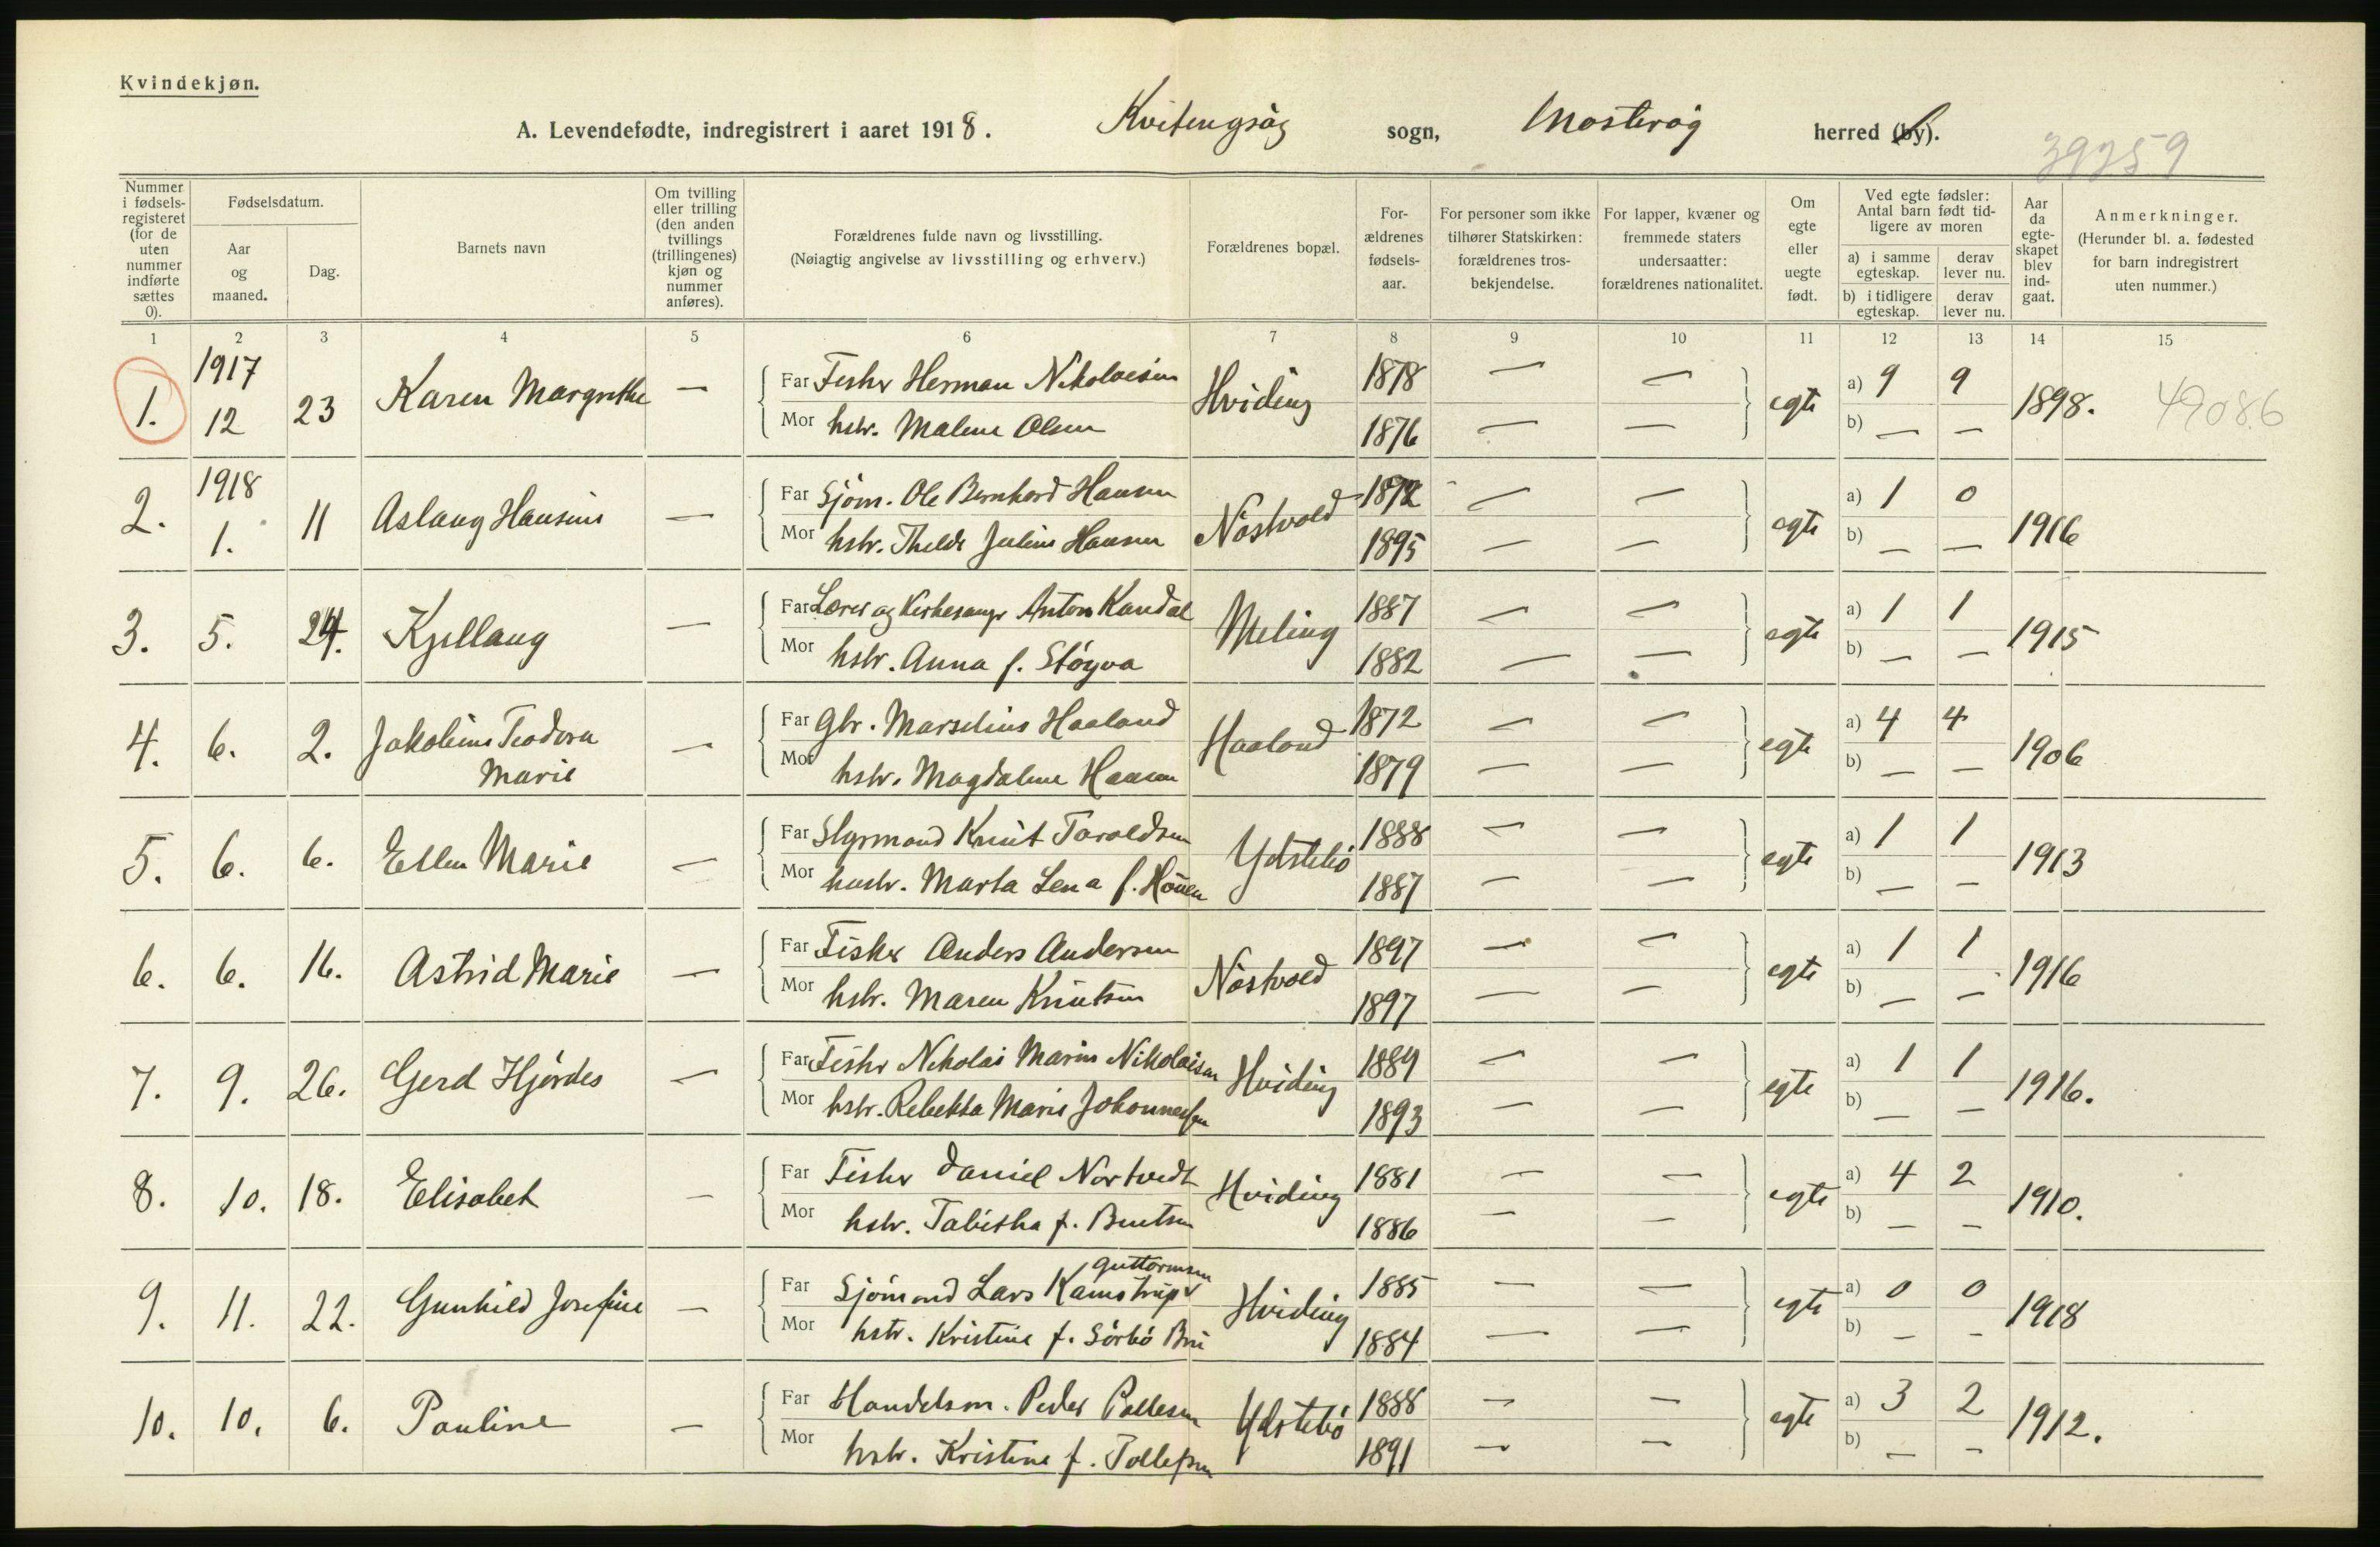 Kvindekjøn.
A. Levendefødte, indregistrert i aaret 1918. Kvitengsöy sogn, Mosteröy herred (by).
39359
Nummer i fødsels-registeret (for de uten nummer indførte sættes 0).
Fødselsdatum.
Aar og maaned.
Dag.
Barnets navn
Om tvilling eller trilling (den anden tvillings (trillingenes) kjøn og nummer anføres).
Forældrenes fulde navn og livsstilling.
(Nøiagtig angivelse av livsstilling og erhverv.)
Forældrenes bopæl.
For-ældrenes fødsels-aar.
For personer som ikke tilhører Statskirken: forældrenes tros-bekjendelse.
For lapper, kvæner og fremmede staters undersaatter: forældrenes nationalitet.
Om egte eller uegte født.
Ved egte fødsler: Antal barn født tid-ligere av moren
a) i samme egteskap.
derav lever nu.
b) i tidligere egteskap.
derav lever nu.
Aar da egte-skapet blev ind-gaat.
Anmerkninger.
(Herunder bl. a. fødested for barn indregistrert uten nummer.)
1 2 3 4 5 6 7 8 9 10 11 12 13 14 15
1. 1917 12 23 Karen Margrethe — Far Fisker Herman Nikolaisen Hviding 1878 — — egte a) 9 9 1898. 49086
Mor hstr. Malene Olsen 1876 — — b) — —
2. 1918 1. 11 Aslaug Hansine — Far Sjöm. Ole Bernhard Hansen Nöstvold 1872 — — egte a) 1 0 1916
Mor hstr. Thelde Juline Hansen 1895 — — b) — —
3. 5. 24. Kjellaug — Far Lærer og Kirkesanger Anton Kandal Meling 1887 — — egte a) 1 1 1915
Mor hstr. Anna f. Stögva 1882 — — b) — —
4. 6. 2. Jakobine Teodora Marie — Far Gbr. Marselius Haaland Haaland 1872 — — egte a) 4 4 1906
Mor hstr. Magdalene Hansen 1879 — — b) — —
5. 6. 6. Ellen Marie — Far Styrmand Knut Toraldsen Ydstebö 1888 — — egte a) 1 1 1913
Mor hustr. Marta Lena f. Hönen 1887 — — b) — —
6. 6. 16. Astrid Marie — Far Fisker Anders Andersen Nöstvold 1897 — — egte a) 1 1 1916
Mor hstr. Maren Knutsen 1897 — — b) — —
7. 9. 26. Gerd Hjördes — Far Fisker Nikolai Marin Nikolaisen Hviding 1889 — — egte a) 1 1 1916.
Mor hstr. Rebekka Marie Johannessen 1893 — — b) — —
8. 10. 18. Elisabet — Far Fisker Daniel Nortvedt Hviding 1881 — — egte a) 4 2 1910.
Mor hstr. Tabitha f. Bentsen 1886 — — b) — —
9. 11. 22. Gunhild Josefine — Far Sjömand Lars Kamstrup Guttormsen Hviding 1885 — — egte a) 0 0 1918
Mor hstr. Kristine f. Sörbö Bru 1884 — — b) — —
10. 10. 6. Pauline — Far Handelsm. Peder Pallesen Ydstebö 1888 — — egte a) 3 2 1912.
Mor hstr. Kristine f. Tollefsen 1891 — — b) — —